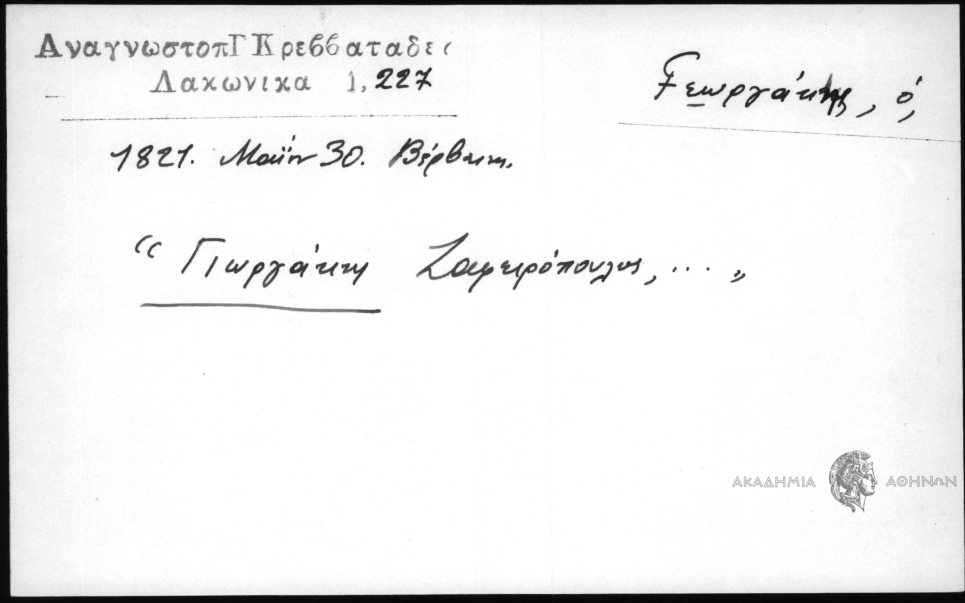 ΑναγνωστοπΓ Κρεββαταδες
Λακωνικα 1, 227
Γεωργάκης, ὁ,
1821. Μαΐου 30. Βέρβαινα.
“ Γιωργάκης Ζαφειρόπουλος, ... „
ΑΚΑΔΗΜΙΑ ΑΘΗΝΩΝ